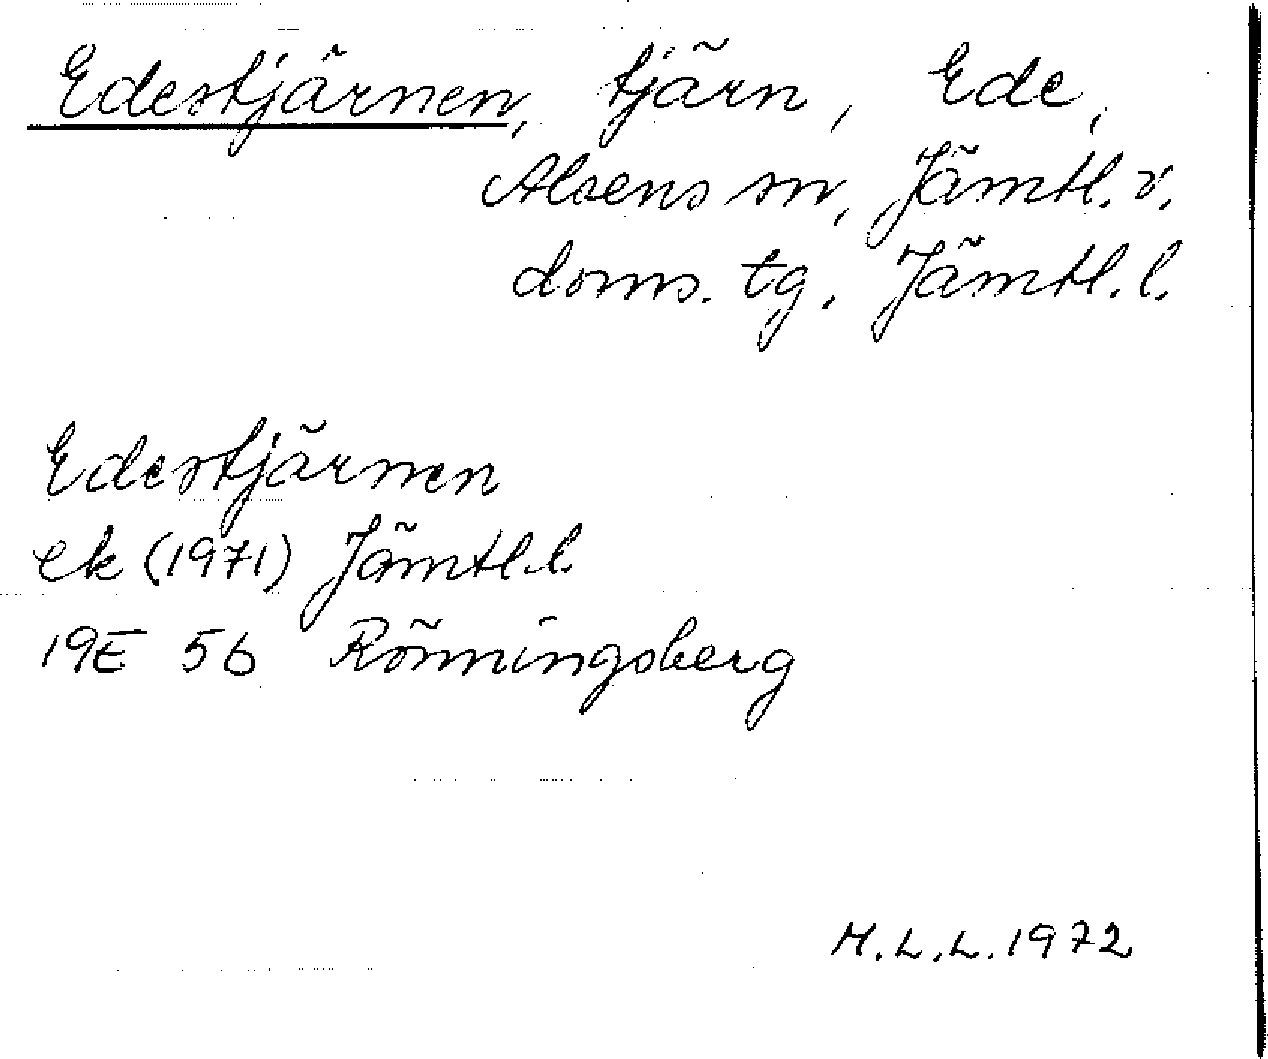 Edestjärnen, tjärn, Ede,
Alsens sn, Jämtl. v.
doms. tg, Jämtl. l.
Edestjärnen
ek (1971) Jämtl. l.
19E 5b Rönningsberg
M.L.L. 1972